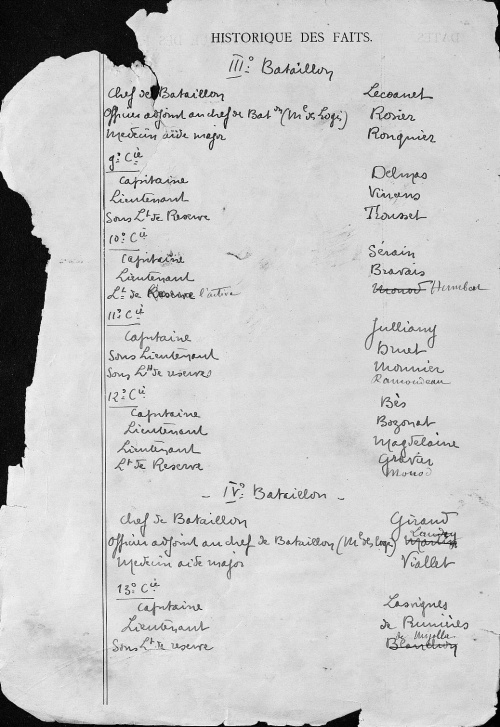 HISTORIQUE DES FAITS.
III° Bataillon
Chef de Bataillon Lecoanet
Officier adjoint au chef de Bat on (Me de Logi) Rosier
Medecin aide major Ronquier
9° Cie
Capitaine Delmas
Lieutenant Vinans
Sous Lt de Reserve Trousset
10° Cie
Capitaine Sérain
Lieutenant Bravais
Lt de Reserve l'active Monod Humbert
11° Cie
Capitaine Julliany
Sous Lieutenant Druet
Sous Lts de reserves Monnier
Ramondeau
12° Cie
Capitaine Bès
Lieutenant Bozonat
Lieutenant Magdelaine
Lt de Reserve Gravier
Monod
- IV° Bataillon -
Chef de Bataillon Giraud
Officier adjoint au chef de Bataillon (Me des Logi) Martin
Medecin aide major Viallet
13° Cie
Capitaine Lasvignes
Lieutenant de Rumières
Sous Lt de reserve Blanchon